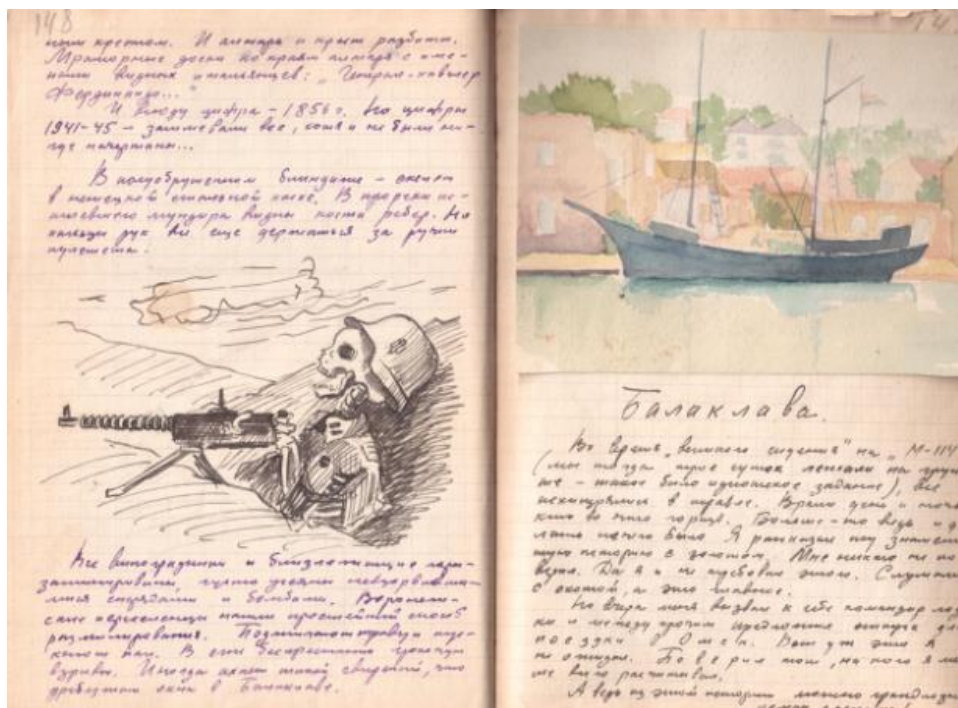 148
ным крестом. И алтарь и крест разбиты.
Мраморные доски по краям алтаря с име-
нами видных итальянцев: "Генерал-кавалер
Фердинандо..."
И всюду цифра - 1856 г. Но цифры
1941-45 - затмевали все, хотя и не были ни-
где начертаны...
В полуобрушенном блиндаже - скелет
в немецкой стальной каске. В прорехи
мундира видны кости ребер. Но
пальцы рук все еще держатся за ручки
пулемета.
Все виноградники и близлежащие
густо усеяны невзорвавши-
мися снарядами и бомбами. Воронеж-
ские переселенцы нашли простейший способ
разминирования. Поджигают траву и
В степи беспрестанно грохочут
взрывы. Иногда ахнет такой, что
дребезжат окна в Балаклаве.
Балаклава.
Во время "великого сидения" на "М-114"
(мы тогда трое суток лежали на грун-
те - такое было идиотское задание), все
в травле. Время день и ночь
Больше-то ведь и де-
лать нечего было. Я рассказал под
историю с золотом. Мне никто не по-
верил. Да я и не требовал этого. Слушали
с охотой, а это главное.
Но вчера меня вызвал к себе командир лод-
ки и между прочим предложил отпуск для
поездки в Омск. Вот уж этого я
не ожидал. Поверил тот, на кого я
не рассчитывал.
А ведь из этой истории можно